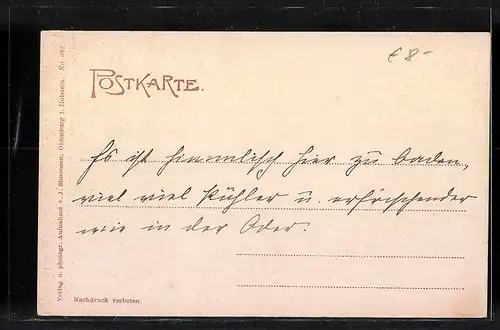 € 8-
POSTKARTE.
Es ist himmlisch hier zu baden,
viel viel kühler u. erfrischender
wie in der Oder.
Nachdruck verboten.
Verlag u. photogr. Aufnahme v. J. Simonsen, Oldenburg i. Holstein. Nr.